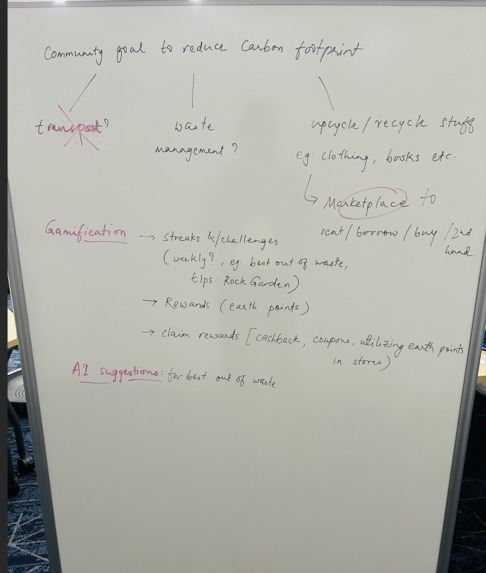 Community goal to reduce Carbon footprint
transport?
waste
management?
upcycle/recycle stuff
eg: clothing, books etc.
↳ Marketplace to
rent/borrow/buy/2nd
hand.
Gamification → streaks &/challenges
(weekly?, eg: best out of waste,
tips: Rock Garden)
→ Rewards (earth points)
→ claim rewards [cashback, coupons, utilizing earth points
in stores)
AI suggestions: for best out of waste